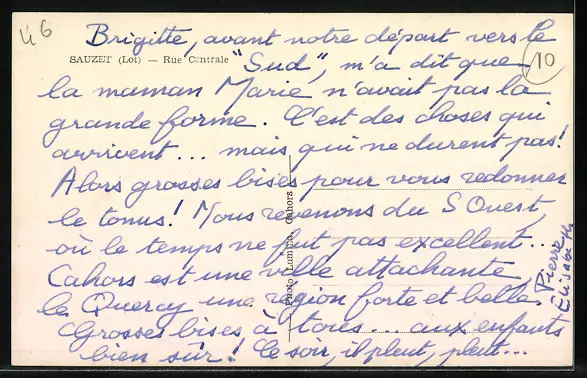 46
Brigitte, avant notre départ vers le
10
SAUZET (Lot) — Rue Centrale
"Sud", m'a dit que
la maman Marie n'avait pas la
grande forme. C'est des choses qui
arrivent... mais qui ne durent pas!
Alors grosses bises pour vous redonner
le tonus! Nous revenons du S Ouest,
où le temps ne fut pas excellent...
Cahors est une ville attachante,
le Quercy une région forte et belle.
Grosses bises à tous... aux enfants
bien sûr! Ce soir, il pleut, pleut...
Pierre
Elisabeth
Photo Lumitio, Cahors